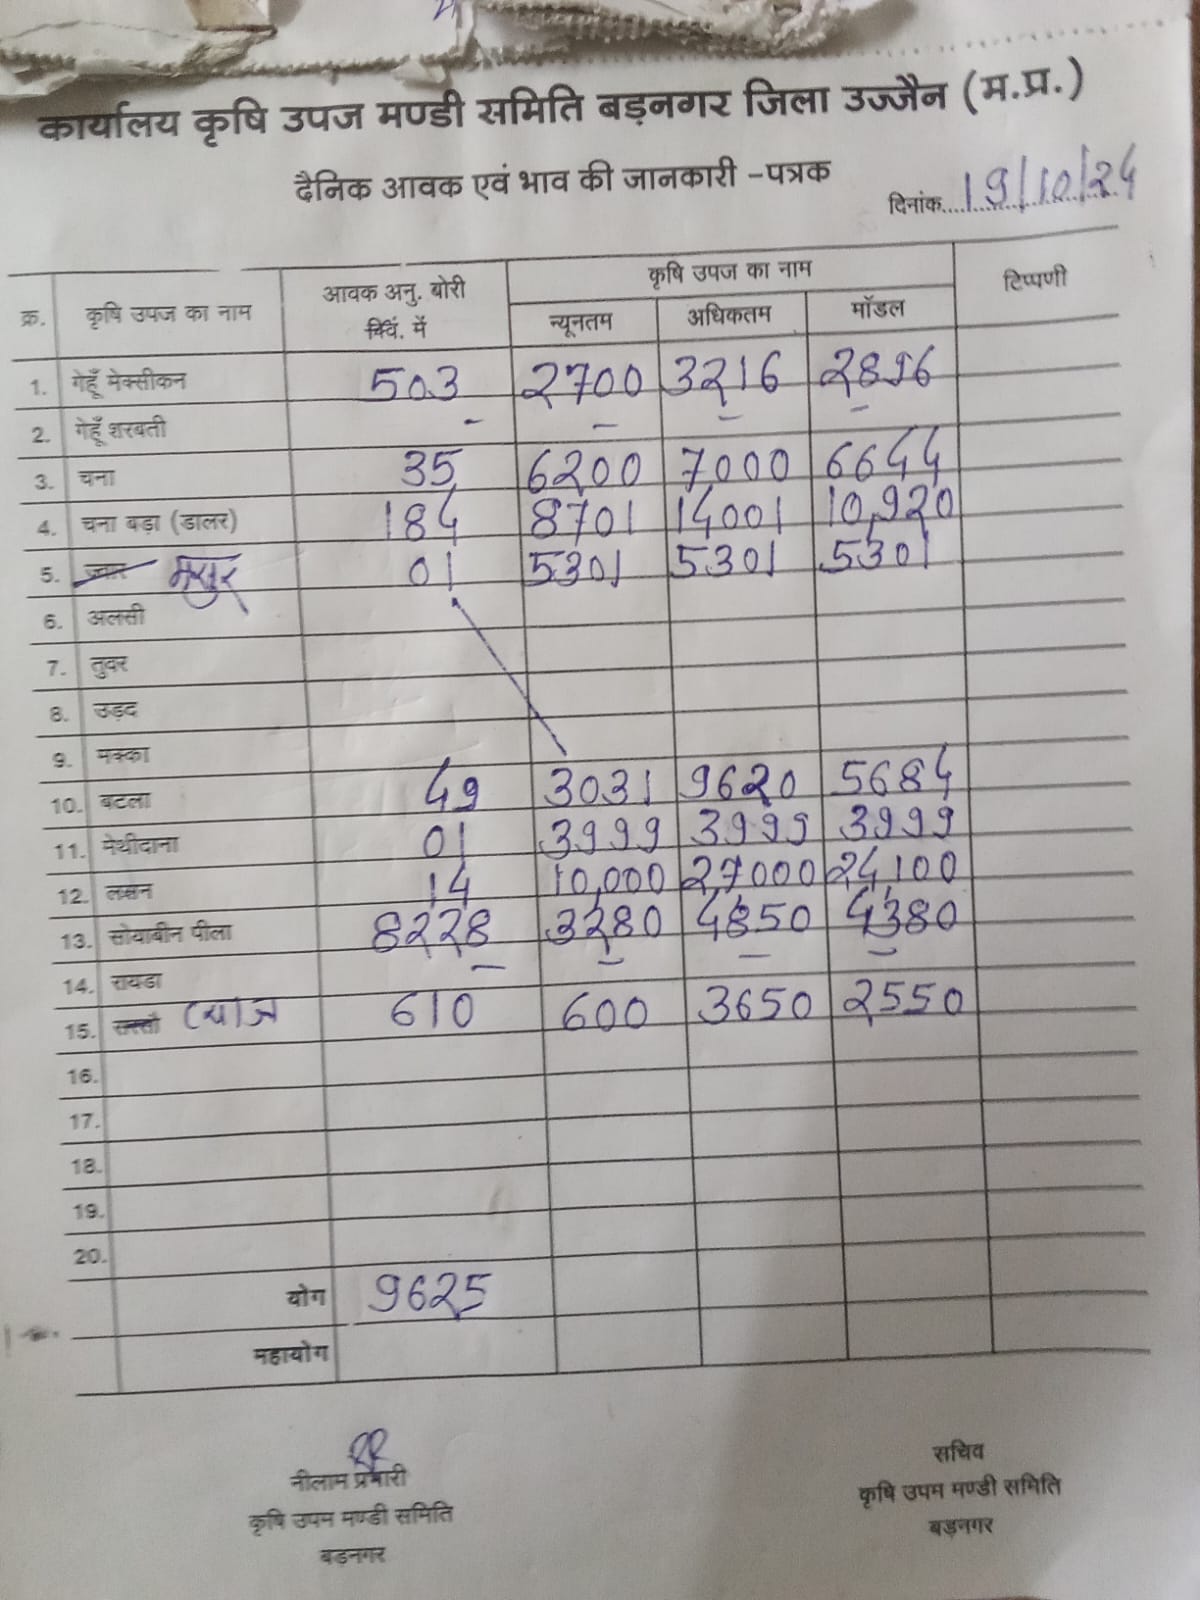 कार्यालय कृषि उपज मण्डी समिति बड़नगर जिला उज्जैन (म.प्र.)
दैनिक आवक एवं भाव की जानकारी -पत्रक
दिनांक....19/10/24
क्र. कृषि उपज का नाम आवक अनु. बोरी क्विं. में कृषि उपज का नाम टिप्पणी
न्यूनतम अधिकतम मॉडल
1. गेहूँ मेक्सीकन 503 2700 3216 2896
2. गेहूँ शरबती - - - -
3. चना 35 6200 7000 6644
4. चना बड़ा (डालर) 184 8701 14001 10,920
5. ज्वार मसुर 01 5301 5301 5301
6. अलसी
7. तुवर
8. उड़द
9. मक्का
10. बटला 49 3031 9620 5684
11. मेथीदाना 01 3999 3999 3999
12. लसन 14 10,000 27000 24,100
13. सोयाबीन पीला 8228 3280 4850 4380
14. रायडा - - - -
15. सरसों प्याज 610 600 3650 2550
16.
17.
18.
19.
20.
योग 9625
महायोग
नीलाम प्रभारी
कृषि उपम मण्डी समिति
बड़नगर
सचिव
कृषि उपम मण्डी समिति
बड़नगर